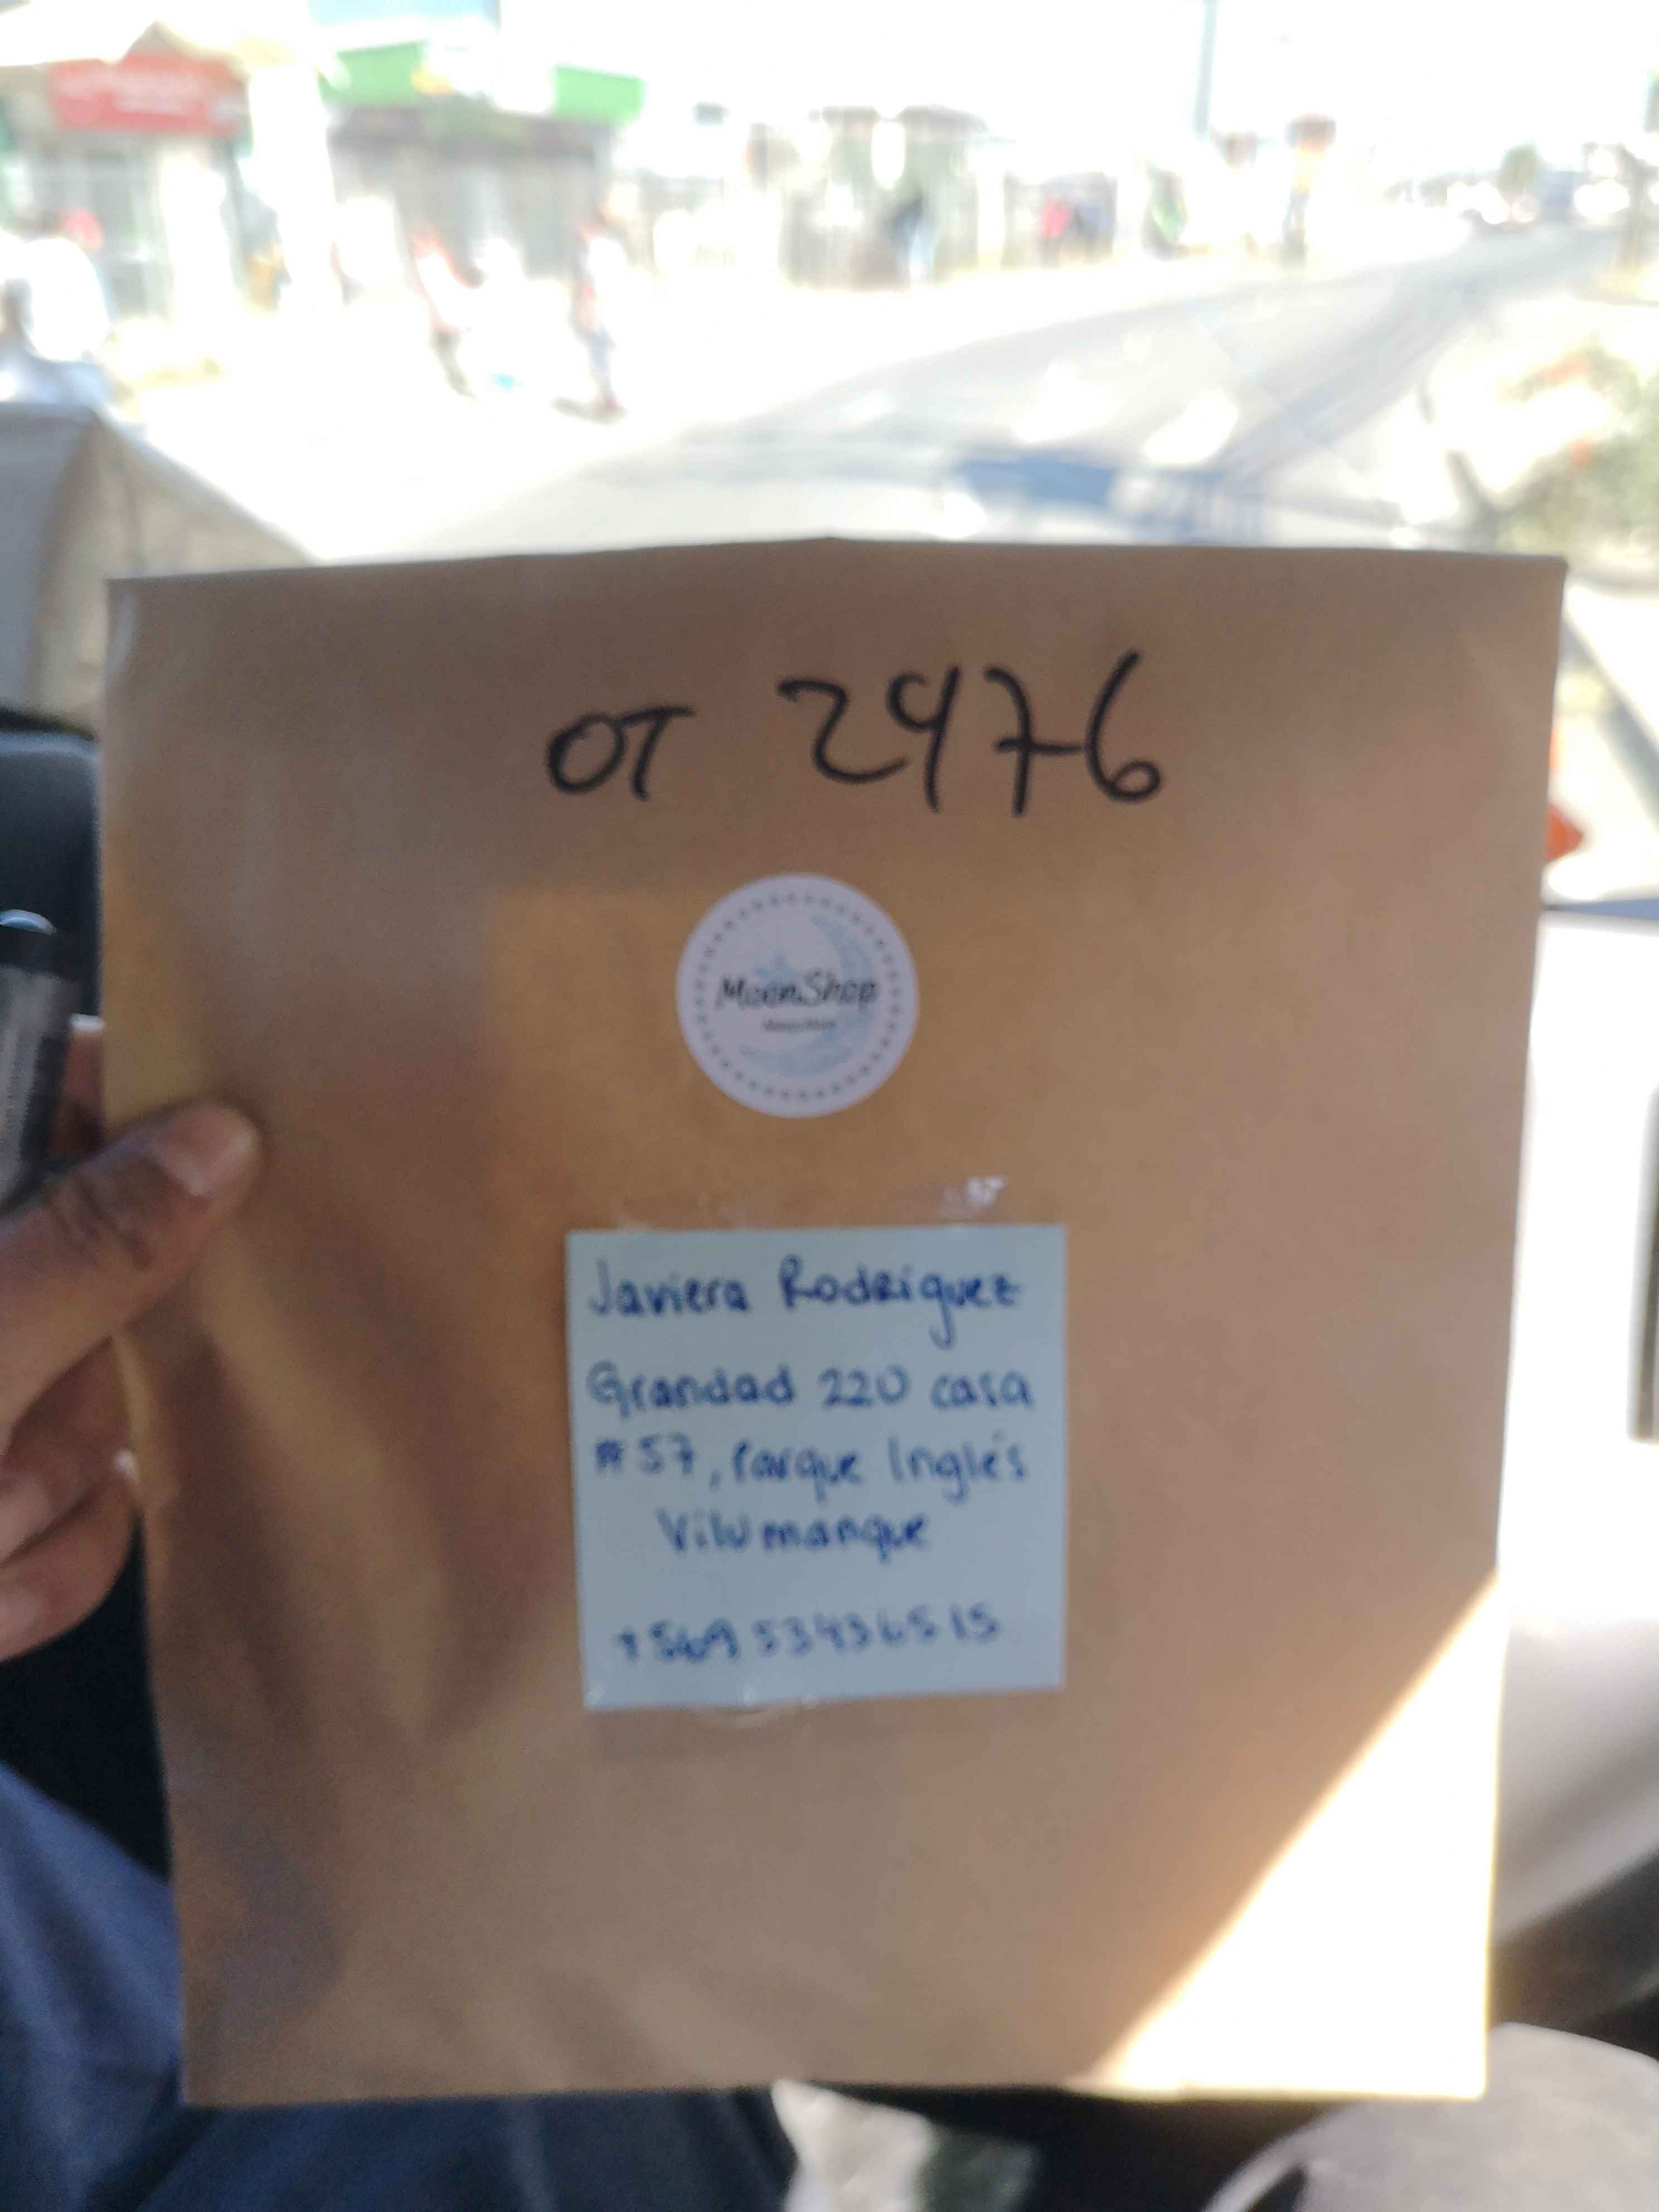 OT 2976
MoonShop
Javiera Rodriguez
Grandad 220 casa
#57, Parque Inglés
Vilumanque
+569 53436515